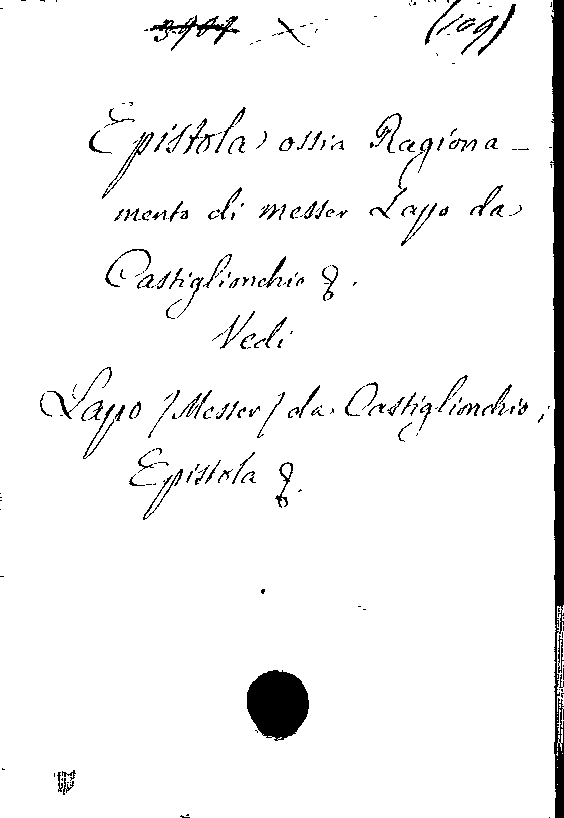 (109)
Epistola ossia Ragiona-
mento di messer Lapo da
Castiglionchio &.
Vedi
Lapo /Messer/ da Castiglionchio;
Epistola &.